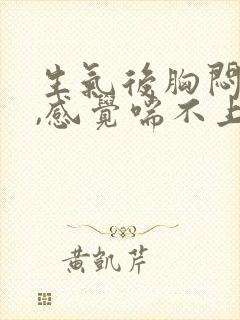 生氣後胸悶
,感覺喘不上
黃凱芹